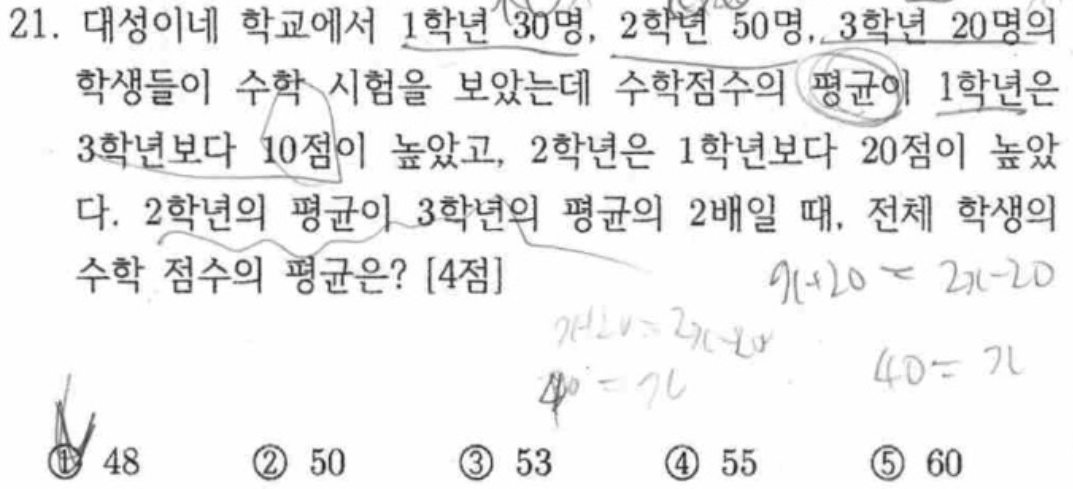 21. 대성이네 학교에서 1학년 30명, 2학년 50명, 3학년 20명의
학생들이 수학 시험을 보았는데 수학점수의 평균이 1학년은
3학년보다 10점이 높았고, 2학년은 1학년보다 20점이 높았
다. 2학년의 평균이 3학년의 평균의 2배일 때, 전체 학생의
수학 점수의 평균은? [4점]
x+20 = 2x-20
x+20 = 2x-20
40 = x
40 = x
① 48 ② 50 ③ 53 ④ 55 ⑤ 60